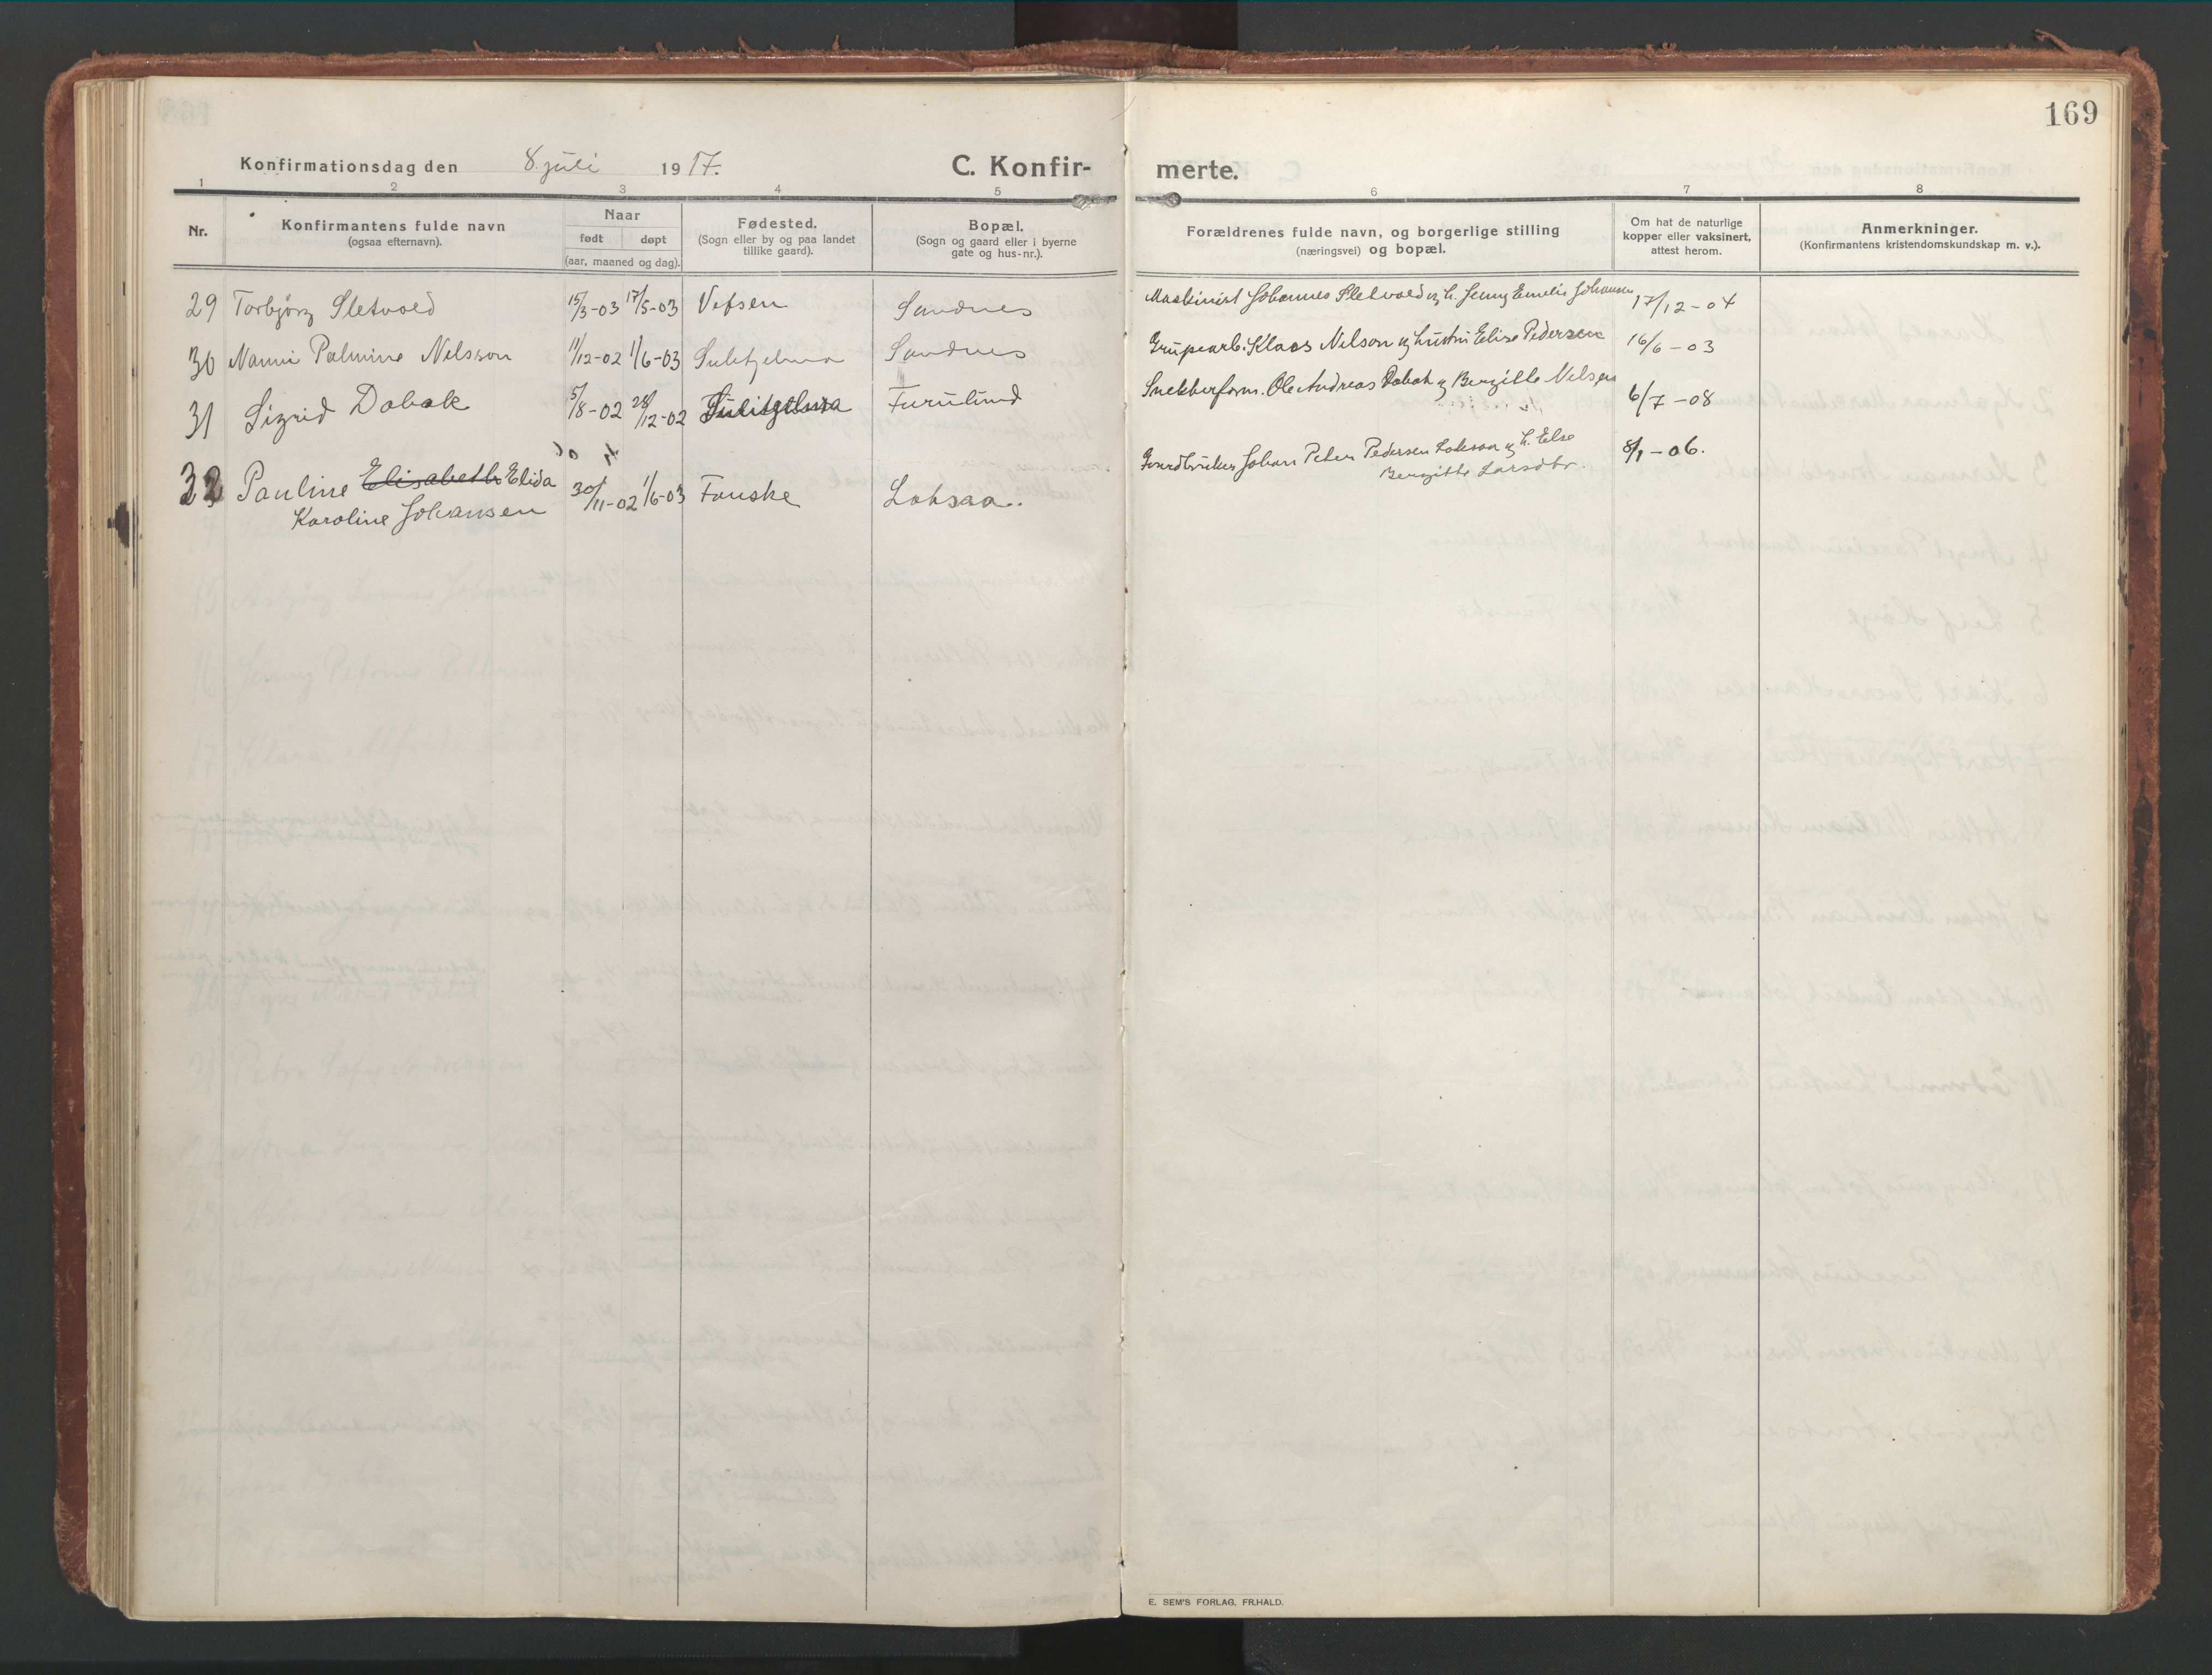 169
Konfirmationsdag den 8. juli 1917.
C. Konfir-
merte.
1 2 3 4 5 6 7 8
Nr.
Konfirmantens fulde navn
(ogsaa efternavn).
Naar
født døpt
(aar, maaned og dag).
Fødested.
(Sogn eller by og paa landet
tillike gaard).
Bopæl.
(Sogn og gaard eller i byerne
gate og hus-nr.).
Forældrenes fulde navn, og borgerlige stilling
(næringsvei) og bopæl.
Om hat de naturlige
kopper eller vaksinert,
attest herom.
Anmerkninger.
(Konfirmantens kristendomskundskap m. v.).
29 Torbjörg Sletvold 15/3-03 17/5-03 Vefsen Sandnes Maskinist Johannes Sletvold og h. Jenny Emelie Johansen 17/12-04
30 Nanni Palmine Nilsson 11/12-02 1/6-03 Sulitjelma Sandnes Grupearb. Klaas Nilson og hustru Elise Pedersen 16/6-03
31 Sigrid Dabak 5/8-02 28/12-02 Sulitjelma Furulund Snekkerform. Ole Andreas Dabak og Bergitte Nilsen 6/7-08
32 Pauline Elisabeth Elida 30/11-02 1/6-03 Fauske Loksaa. Gaardbruker Johan Peter Pedersen Loksaa og h. Else 8/1-06.
Karoline Johansen
Bergitte Larsdtr.
E. SEM'S FORLAG, FR.HALD.